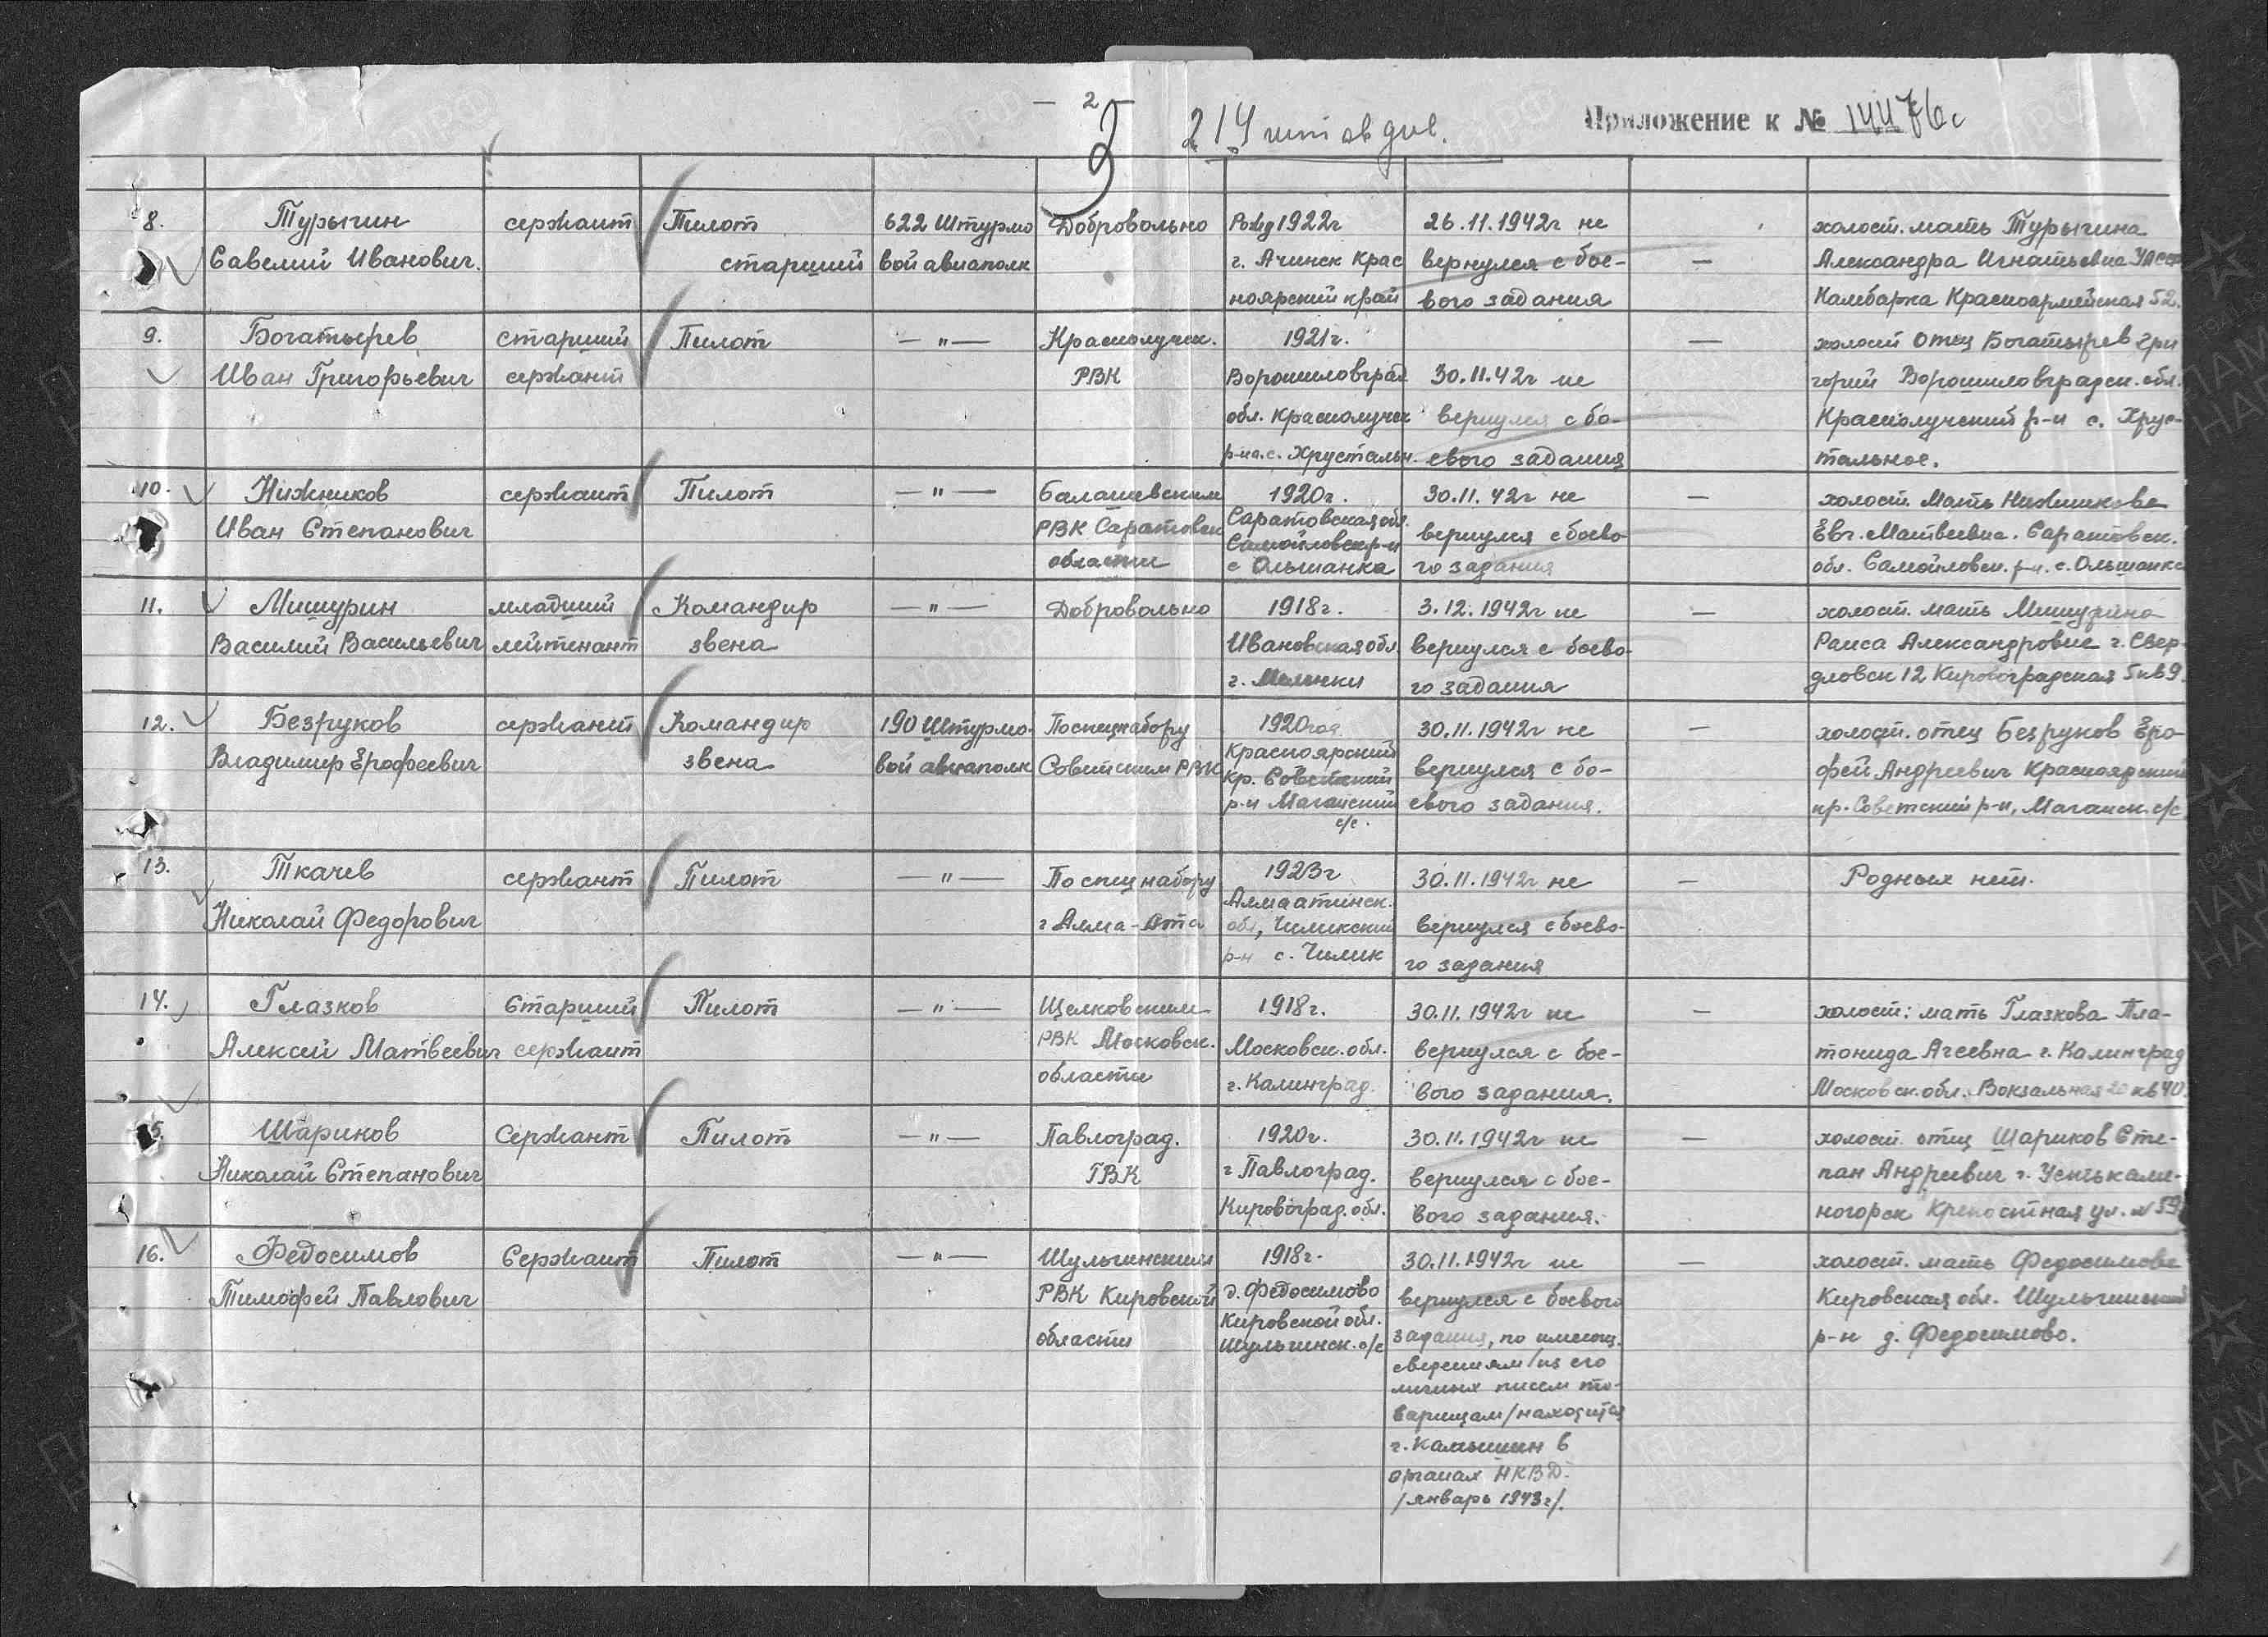 — 2 —
214 шт ав див.
Приложение к № 14476с
8.
Турыгин
Савелий Иванович.
сержант
Пилот
старший
622 Штурмо
вой авиаполк
Добровольно
Род 1922г
г. Ачинск Крас
ноярский край
26.11.1942г не
вернулся с бое-
вого задания
—
холост. мать Турыгина
Александра Игнатьевна УАССР
Камбарка Красноармейская 52.
9.
Богатырев
Иван Григорьевич
старший
сержант
Пилот
— " —
Краснолучск.
РВК
1921г.
Ворошиловград
обл. Краснолучск
р-на. с. Хрустальн.
30.11.42г не
вернулся с бо-
евого задания
—
холост отец Богатырев Гри
горий Ворошиловградск. обл.
Краснолучский р-н с. Хрус-
тальное.
10.
Нижников
Иван Степанович
сержант
Пилот
— " —
Балашевским
РВК Саратовск
области
1920г.
Саратовская обл.
Самойловск р-н
с Ольшанка
30.11.42г не
вернулся с боево
го задания
—
холост. Мать Нижникова
Евг. Матвеевна. Саратовск.
обл. Самойловск. р-н. с. Ольшанка
11.
Мишурин
Василий Васильевич
младший
лейтенант
Командир
звена
— " —
Добровольно
1918г.
Ивановская обл.
г. Меленки
3.12.1942г не
вернулся с боево-
го задания
—
холост. мать Мишурина
Раиса Александровна г. Свер-
дловск 12 Кировоградская 5 кв 9.
12.
Безруков
Владимир Ерофеевич
сержант
Командир
звена
190 Штурмо-
вой авиаполк
По спецнабору
Советским РВК
1920год
Красноярский
кр. Советский
р-н Маганский
с/с.
30.11.1942г не
вернулся с бо-
евого задания.
—
холост. отец Безруков Еро-
фей Андреевич Красноярский
кр. Советский р-н, Маганск. с/с
13.
Ткачев
Николай Федорович
сержант
Пилот
— " —
По спец набору
г Алма-Ата
1923г
Алмаатинск.
обл, Чиликский
р-н с. Чилик
30.11.1942г не
вернулся с боево-
го задания
—
Родных нет.
14.
Глазков
Алексей Матвеевич
Старший
сержант
Пилот
— " —
Щелковским
РВК Московск.
области
1918г.
Московск. обл.
г. Калинград.
30.11.1942г не
вернулся с бое-
вого задания.
—
холост: мать Глазкова Пла-
тонида Агеевна г. Калинград
Московск. обл. Вокзальная 20 кв 40.
15.
Шариков
Николай Степанович
Сержант
Пилот
— " —
Павлоград.
ГВК
1920г.
г Павлоград.
Кировоград. обл.
30.11.1942г не
вернулся с бое-
вого задания.
—
холост. отец Шариков Сте-
пан Андреевич г. Устькаме-
ногорск Крепостная ул. № 59
16.
Федосимов
Тимофей Павлович
Сержант
Пилот
— " —
Шульгинским
РВК Кировской
области
1918г.
д. Федосимово
Кировской обл.
Шульгинск. с/с
30.11.1942г не
вернулся с боевого
задания, по имеющ.
сведениям /из его
личных писем то-
варищам/ находится
г. Камышин в
органах НКВД.
/январь 1943г/.
—
холост. мать Федосимова
Кировская обл. Шульгинский
р-н д. Федосимово.